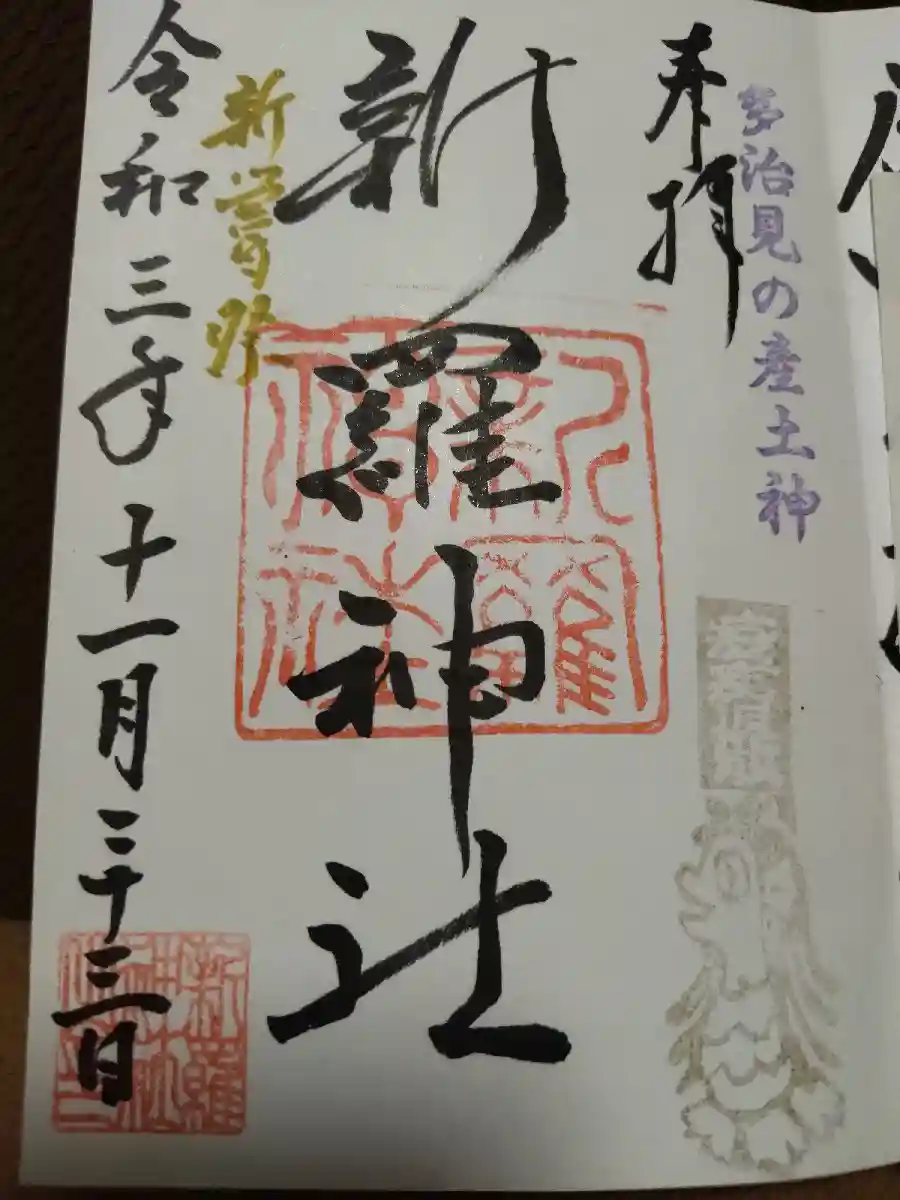 多治見の産土神
奉拝
新羅神社
新羅神社
新嘗祭
令和三年十一月二十三日